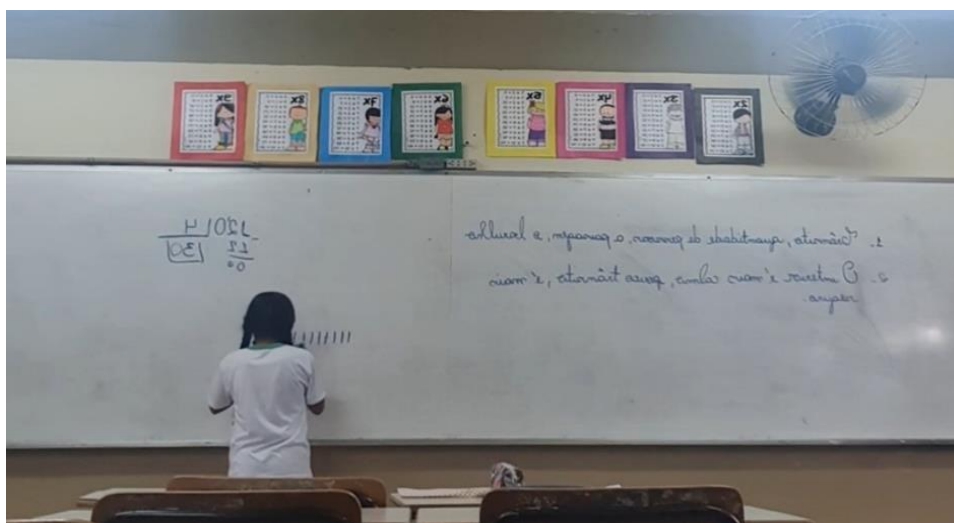 2x 3x 4x 5x 6x 7x 8x 9x
1. Trânsito, quantidade de pessoas, a paisagem, o barulho
2. O interior é mais calmo, pouco trânsito, é mais
seguro.
120 4
-12 30
00